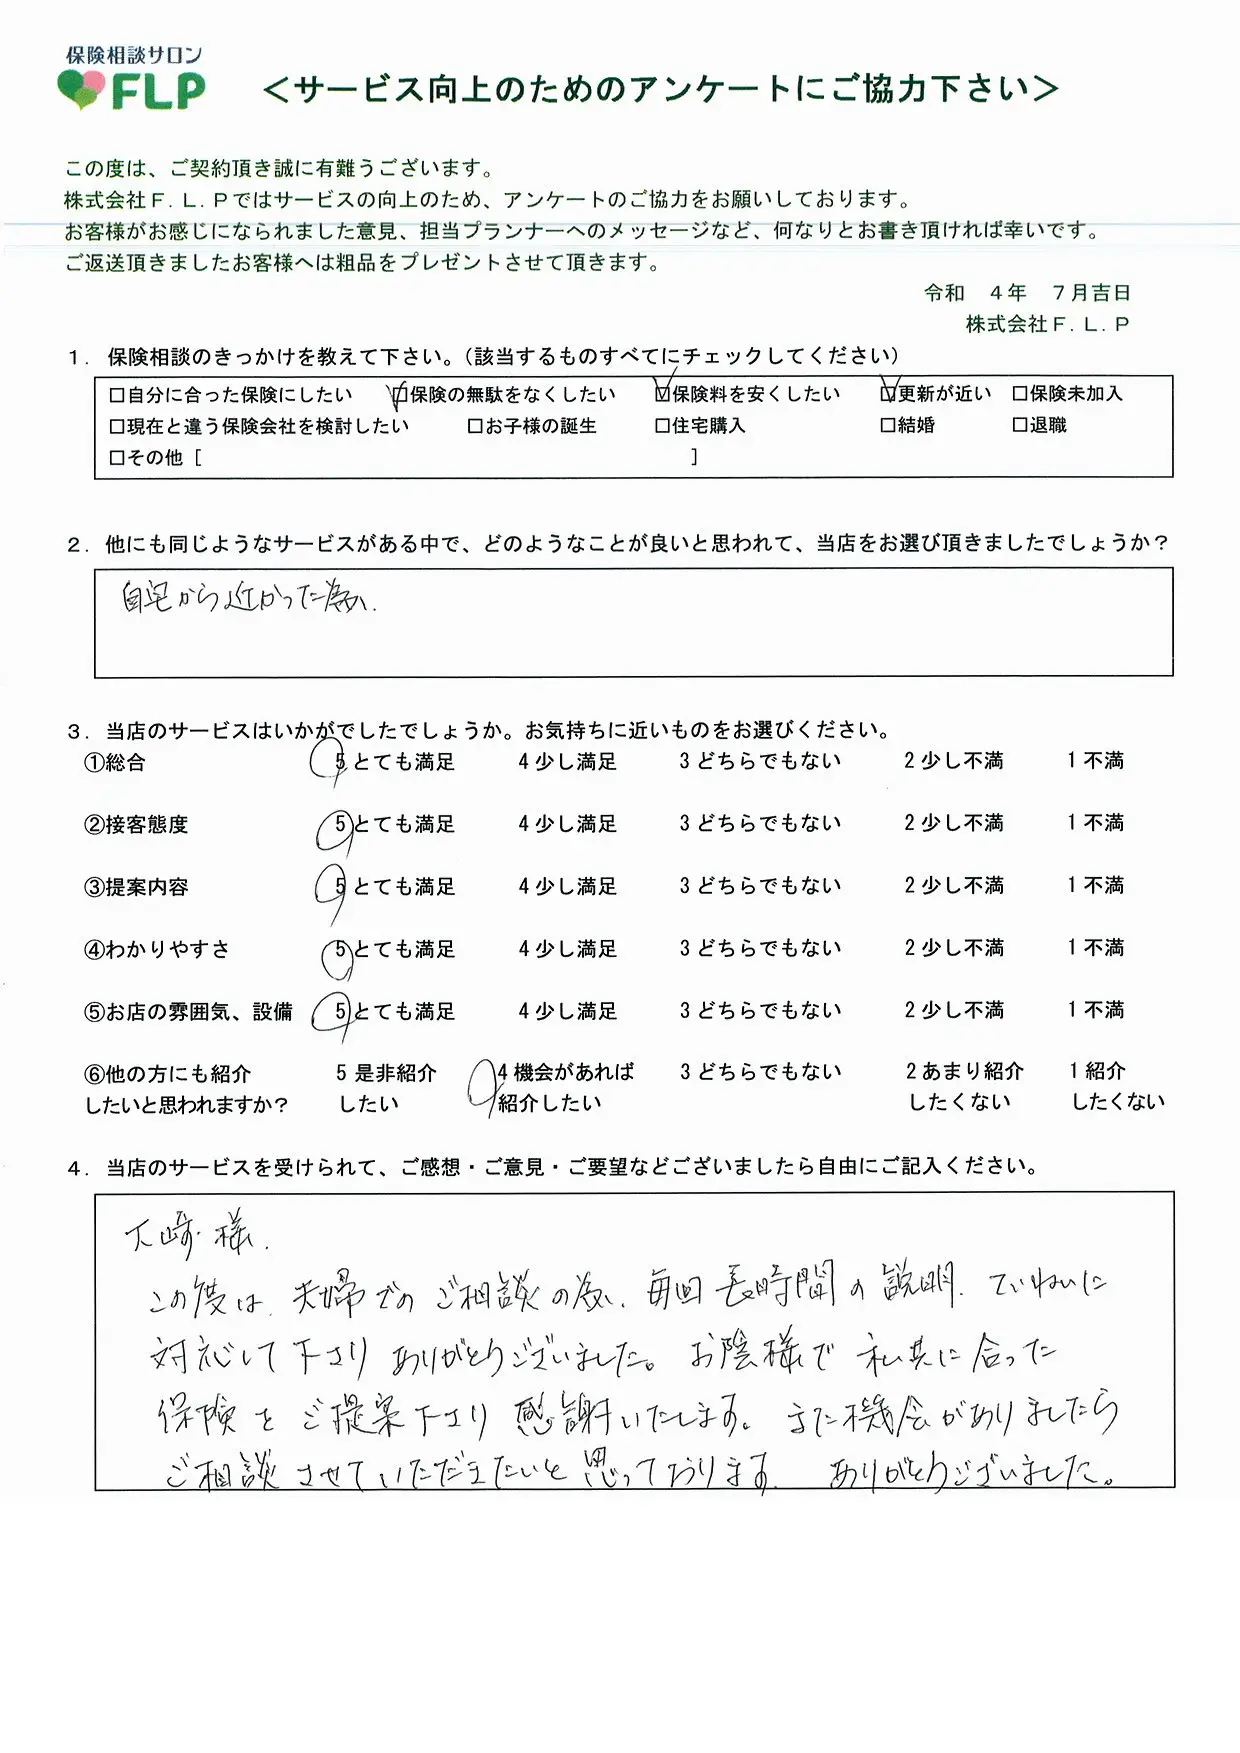 保険相談サロン
FLP
＜サービス向上のためのアンケートにご協力下さい＞
この度は、ご契約頂き誠に有難うございます。
株式会社Ｆ．Ｌ．Ｐではサービスの向上のため、アンケートのご協力をお願いしております。
お客様がお感じになられました意見、担当プランナーへのメッセージなど、何なりとお書き頂ければ幸いです。
ご返送頂きましたお客様へは粗品をプレゼントさせて頂きます。
令和　４年　７月吉日
株式会社Ｆ．Ｌ．Ｐ
１．保険相談のきっかけを教えて下さい。（該当するものすべてにチェックしてください）
□自分に合った保険にしたい　☑保険の無駄をなくしたい　☑保険料を安くしたい　☑更新が近い　□保険未加入
□現在と違う保険会社を検討したい　□お子様の誕生　□住宅購入　□結婚　□退職
□その他［　］
２．他にも同じようなサービスがある中で、どのようなことが良いと思われて、当店をお選び頂きましたでしょうか？
自宅から近かった為。
３．当店のサービスはいかがでしたでしょうか。お気持ちに近いものをお選びください。
①総合　5 とても満足　4 少し満足　3 どちらでもない　2 少し不満　1 不満
②接客態度　5 とても満足　4 少し満足　3 どちらでもない　2 少し不満　1 不満
③提案内容　5 とても満足　4 少し満足　3 どちらでもない　2 少し不満　1 不満
④わかりやすさ　5 とても満足　4 少し満足　3 どちらでもない　2 少し不満　1 不満
⑤お店の雰囲気、設備　5 とても満足　4 少し満足　3 どちらでもない　2 少し不満　1 不満
⑥他の方にも紹介　5 是非紹介　4 機会があれば　3 どちらでもない　2 あまり紹介　1 紹介
したいと思われますか？　したい　紹介したい　したくない　したくない
４．当店のサービスを受けられて、ご感想・ご意見・ご要望などございましたら自由にご記入ください。
大崎様.
この度は、夫婦でのご相談の為、毎回長時間の説明、ていねいに
対応して下さりありがとうございました。お陰様で私共に合った
保険をご提案下さり感謝いたします。また機会がありましたら
ご相談させていただきたいと思っております。ありがとうございました。